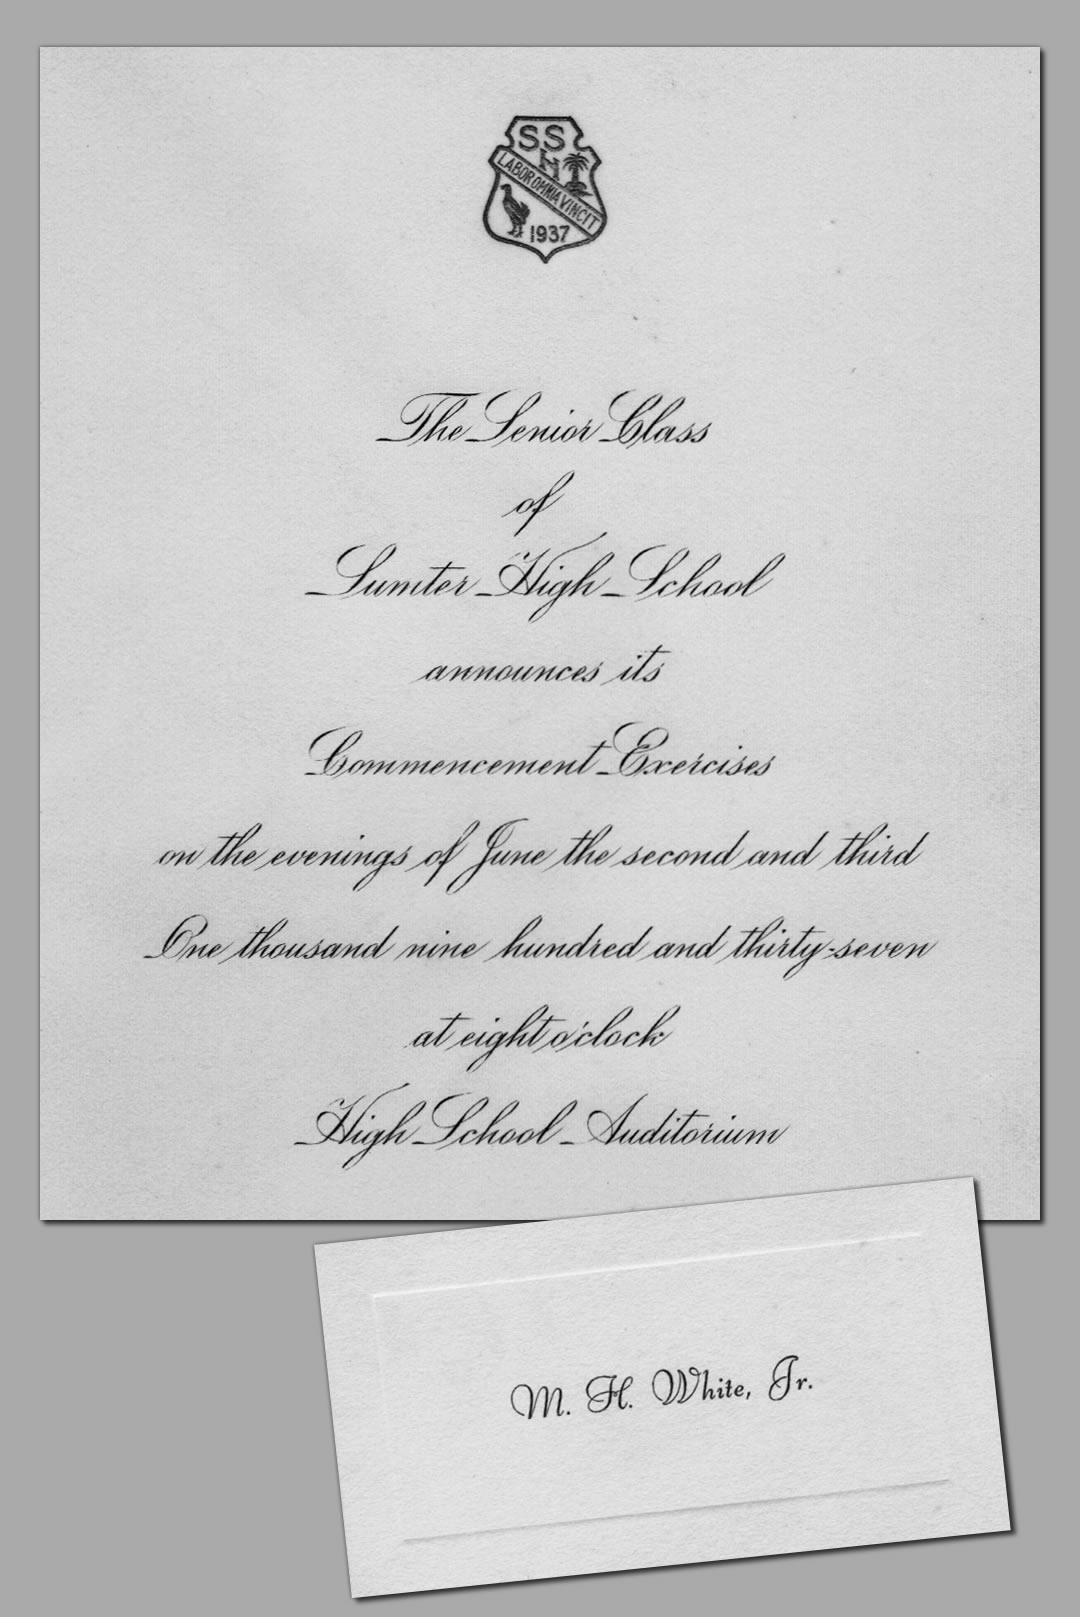 SSH
LABOR OMNIA VINCIT
1937
The Senior Class
of
Sumter High School
announces its
Commencement Exercises
on the evenings of June the second and third
One thousand nine hundred and thirty-seven
at eight o'clock
High School Auditorium
M. H. White, Jr.